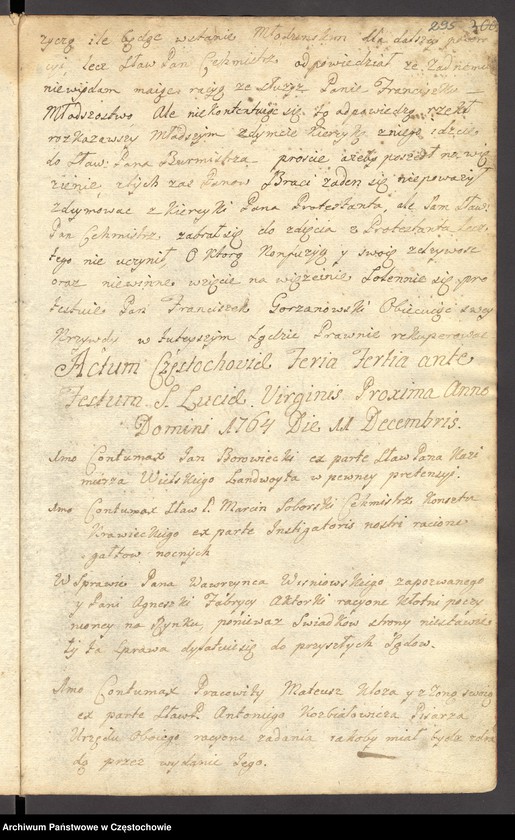 295 366
życzą ile będąc w stanie Młodzenskim dla dalszej
lecz Sław Pan Cechmistrz odpowiedział że żadnemu
niewiydam maiącą racyą ze słuszn Panie Franciszku
Młodzostwo Ale niekontentuiąc się tą odpowiedzą rzekł
rozkazawszy Młodszym zdymcie kierykę zniego idzcie
do Sław: Pana Burmistrza proście ażeby poszedł na wię
zienie, z tych zas Panow Braci żaden się niepoważył
zdymować z kiereyki Pana Protestanta, ale sam Sław:
Pan Cechmistrz zabrał się do zdięcia z Protestanta lecz
tego nie uczynił O ktorą Konfuzyą y swoię zelzywosc
oraz niewinne wzięcie na więzienie Solennie się pro
testuie Pan Franciszek Gorzanowski Obiecuiąc swey
Krzywdy w tuteyszym Sądzie Prawnie rekuperować
Actum Częstochoviæ Feria Tertia ante
Festum S. Luciæ Virginis Proxima Anno
Domini 1764 Die 11 Decembris.
Amo Contumax Jan Borowiecki ex parte Sław Pana Kazi
mierza Wielskiego Landwoyta w pewney pretensyi.
Amo Contumax Sław P. Marcin Soborski Cechmistrz Konsztu
Krawieckiego ex parte Instigatoris nostri racione
gałtow nocnych
W Sprawie Pana Wawrzynca Wisniowskiego zapozwanego
y Pani Agneszki Fabrycy Aktorki racyone kłotni poczy
nioney na Rynku, poniewaz Swiadkow strony niestawiły
tj ta sprawa dylatuie się do przyszłych Sądow.
Amo Contumax Pracowity Mateusz Kloza y z Zoną swoią
ex parte Sław P. Antoniego Kozbiałowicza Pisarza
Urzędu Oboiego racyone zadania iakoby miał bydz zdra
dą przez wydanie Iego.
Archiwum Państwowe w Częstochowie